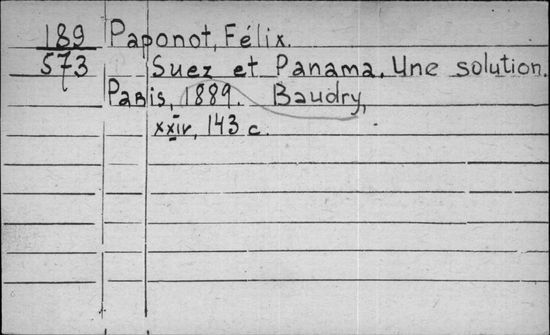 189 Paponot, Félix.
573 Suez et Panama. Une solution.
Paris, 1889. Baudry,
xxiv, 143 c.